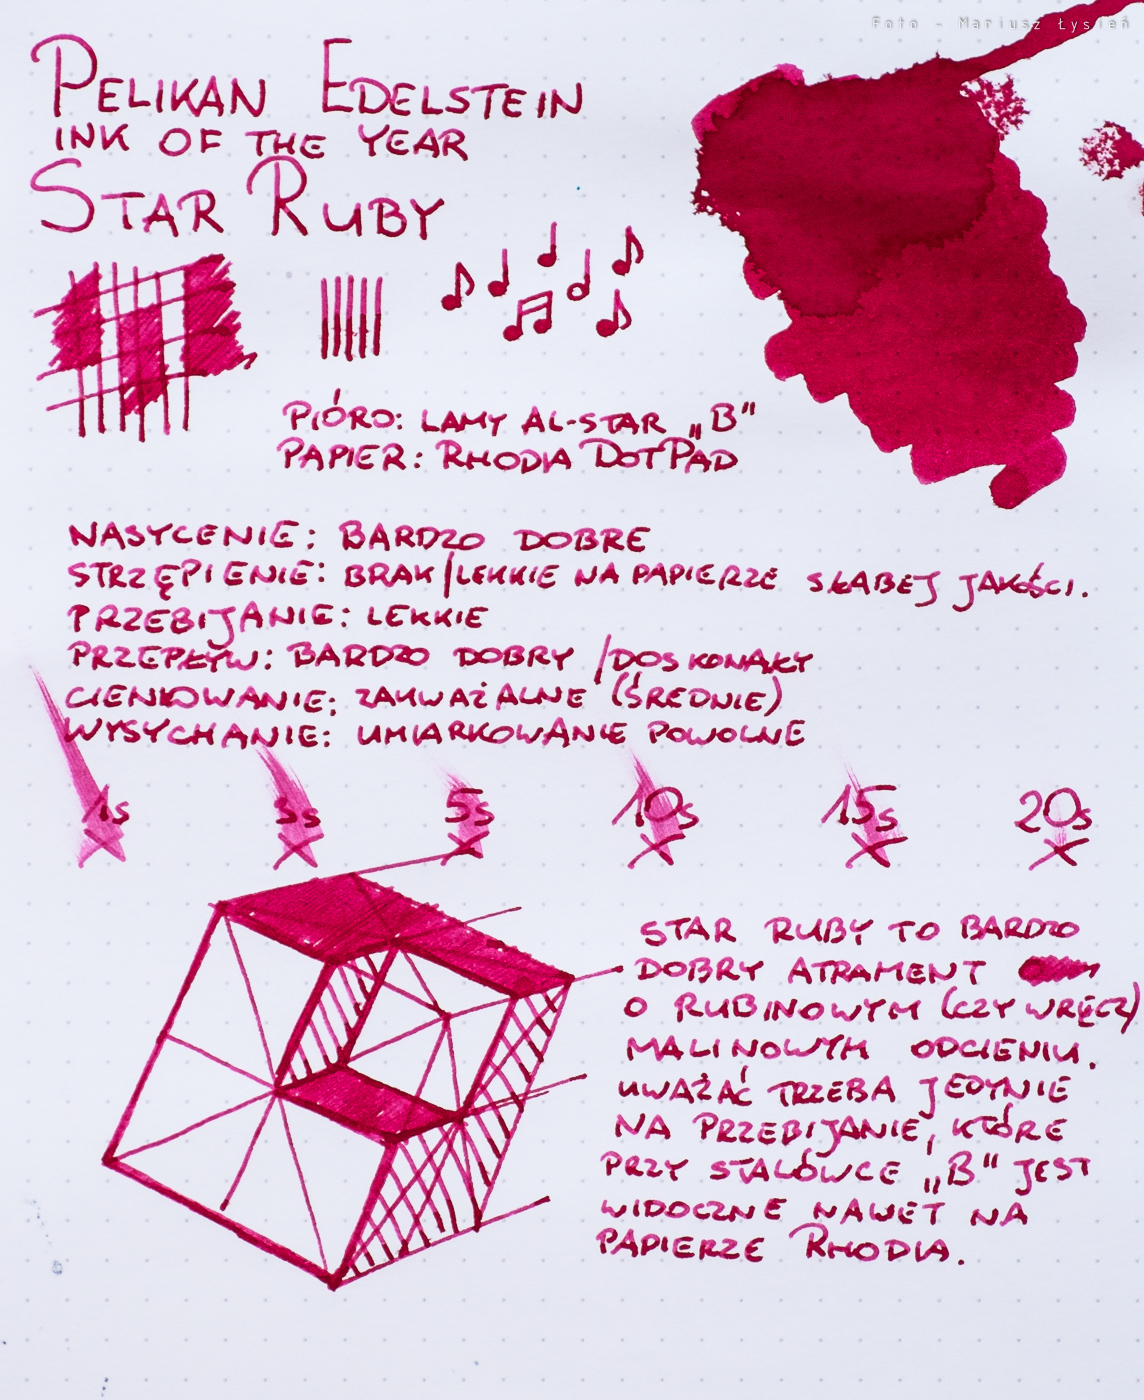 Foto - Mariusz Łysień
PELIKAN EDELSTEIN
INK OF THE YEAR
STAR RUBY
PIÓRO: LAMY AL-STAR „B"
PAPIER: RHODIA DOTPAD
NASYCENIE: BARDZO DOBRE
STRZĘPIENIE: BRAK/LEKKIE NA PAPIERZE SŁABEJ JAKOŚCI.
PRZEBIJANIE: LEKKIE
PRZEPŁYW: BARDZO DOBRY /DOSKONAŁY
CIENIOWANIE: ZAUWAŻALNE (ŚREDNIE)
WYSYCHANIE: UMIARKOWANIE POWOLNE
1s 3s 5s 10s 15s 20s
STAR RUBY TO BARDZO
DOBRY ATRAMENT
O RUBINOWYM (CZY WRĘCZ)
MALINOWYM ODCIENIU.
UWAŻAĆ TRZEBA JEDYNIE
NA PRZEBIJANIE, KTÓRE
PRZY STALÓWCE „B" JEST
WIDOCZNE NAWET NA
PAPIERZE RHODIA.